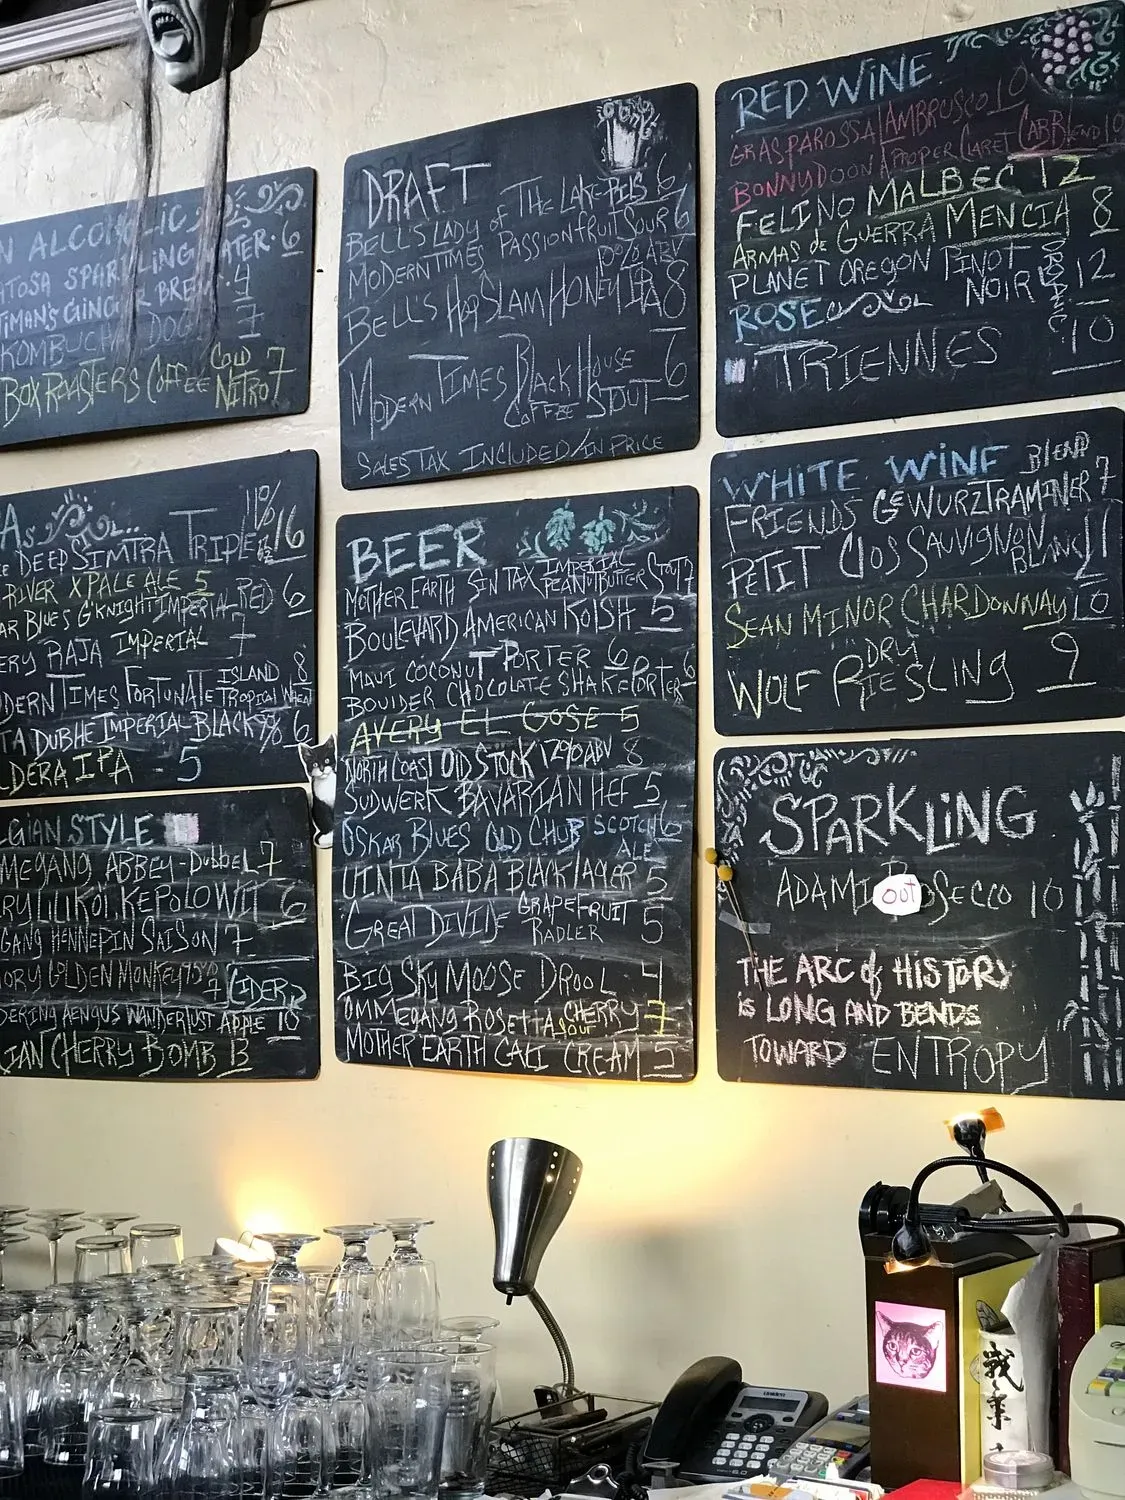 N ALCOHOLIC
ATOSA SPARKLING WATER · 6
TIMAN'S GINGER BREW · 4
KOMBUCHA DOG 7
BOX ROASTERS COFFEE COLD NITRO 7
DRAFT
BELL'S LADY of THE LAKE-PILS 6
MODERN TIMES PASSIONFRUIT SOUR 6
10% ABV
BELL'S HOP SLAM HONEY IPA 8
MODERN TIMES BLACK HOUSE 6
COFFEE STOUT
SALES TAX INCLUDED IN PRICE
RED WINE
GRASPAROSSA LAMBRUSCO 10
BONNY DOON A PROPER CLARET CAB BLEND 10
FELINO MALBEC 12
ARMAS de GUERRA MENCIA 8
PLANET OREGON PINOT NOIR 12
ORGANIC
ROSE
TRIENNES 10
As 11%
DEEP SIMTRA TRIPLE 16
RIVER X PALE ALE 5
AR BLUES G'KNIGHT IMPERIAL RED 6
ERY RAJA IMPERIAL 7
DERN TIMES FORTUNATE ISLAND 8
TROPICAL WHEAT
TA DUBHE IMPERIAL BLACK 9% 6
LDERA IPA - 5
BEER
MOTHER EARTH SIN TAX IMPERIAL PEANUT BUTTER STOUT 7
BOULEVARD AMERICAN KOLSH 5
MAUI COCONUT PORTER 6
BOULDER CHOCOLATE SHAKE PORTER 6
AVERY EL GOSE 5
NORTH COAST OLD STOCK 12% ABV 8
SUDWERK BAVARIAN HEF 5
OSKAR BLUES OLD CHUB SCOTCH ALE 6
UINTA BABA BLACK LAGER 5
GREAT DIVIDE GRAPEFRUIT RADLER 5
BIG SKY MOOSE DROOL 4
OMMEGANG ROSETTA CHERRY SOUR 7
MOTHER EARTH CALI CREAM 5
WHITE WINE
FRIENDS GEWURZTRAMINER BLEND 7
PETIT CLOS SAUVIGNON BLANC 11
SEAN MINOR CHARDONNAY 10
WOLF DRY RIESLING 9
LGIAN STYLE
MEGANG ABBEY-DUBBEL 7
RY LILIKOI KEPOLO WIT 6
GANG HENNEPIN SAISON 7
ORY GOLDEN MONKEY 7
CIDER
DERING AENGUS WANDERLUST APPLE 10
IAN CHERRY BOMB 13
SPARKLING
ADAMI PROSECCO 10
OUT
THE ARC of HISTORY
IS LONG AND BENDS
TOWARD ENTROPY
uniden
戦